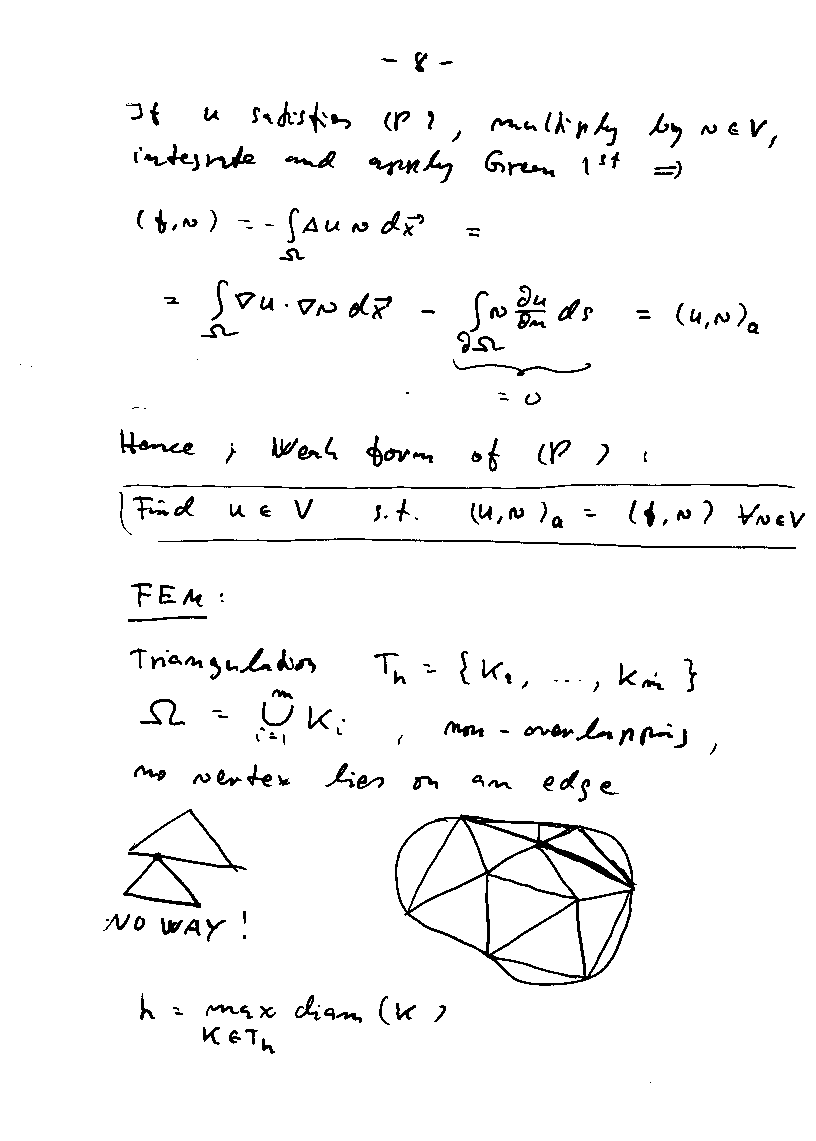 - 8 -
If u satisfies (P), multiply by v ∈ V,
integrate and apply Green 1st ⇒
(f,v) = - ∫_Ω Δu v dx⃗ =
= ∫_Ω ∇u · ∇v dx⃗ - ∫_∂Ω v ∂u/∂n ds = (u,v)_a
= 0
Hence, Weak form of (P):
Find u ∈ V s.t. (u,v)_a = (f,v) ∀v∈V
FEM:
Triangulation T_h = {K_1, ..., K_m}
Ω = ⋃_{i=1}^m K_i, non-overlapping,
no vertex lies on an edge
NO WAY!
h = max diam (K)
K∈T_h